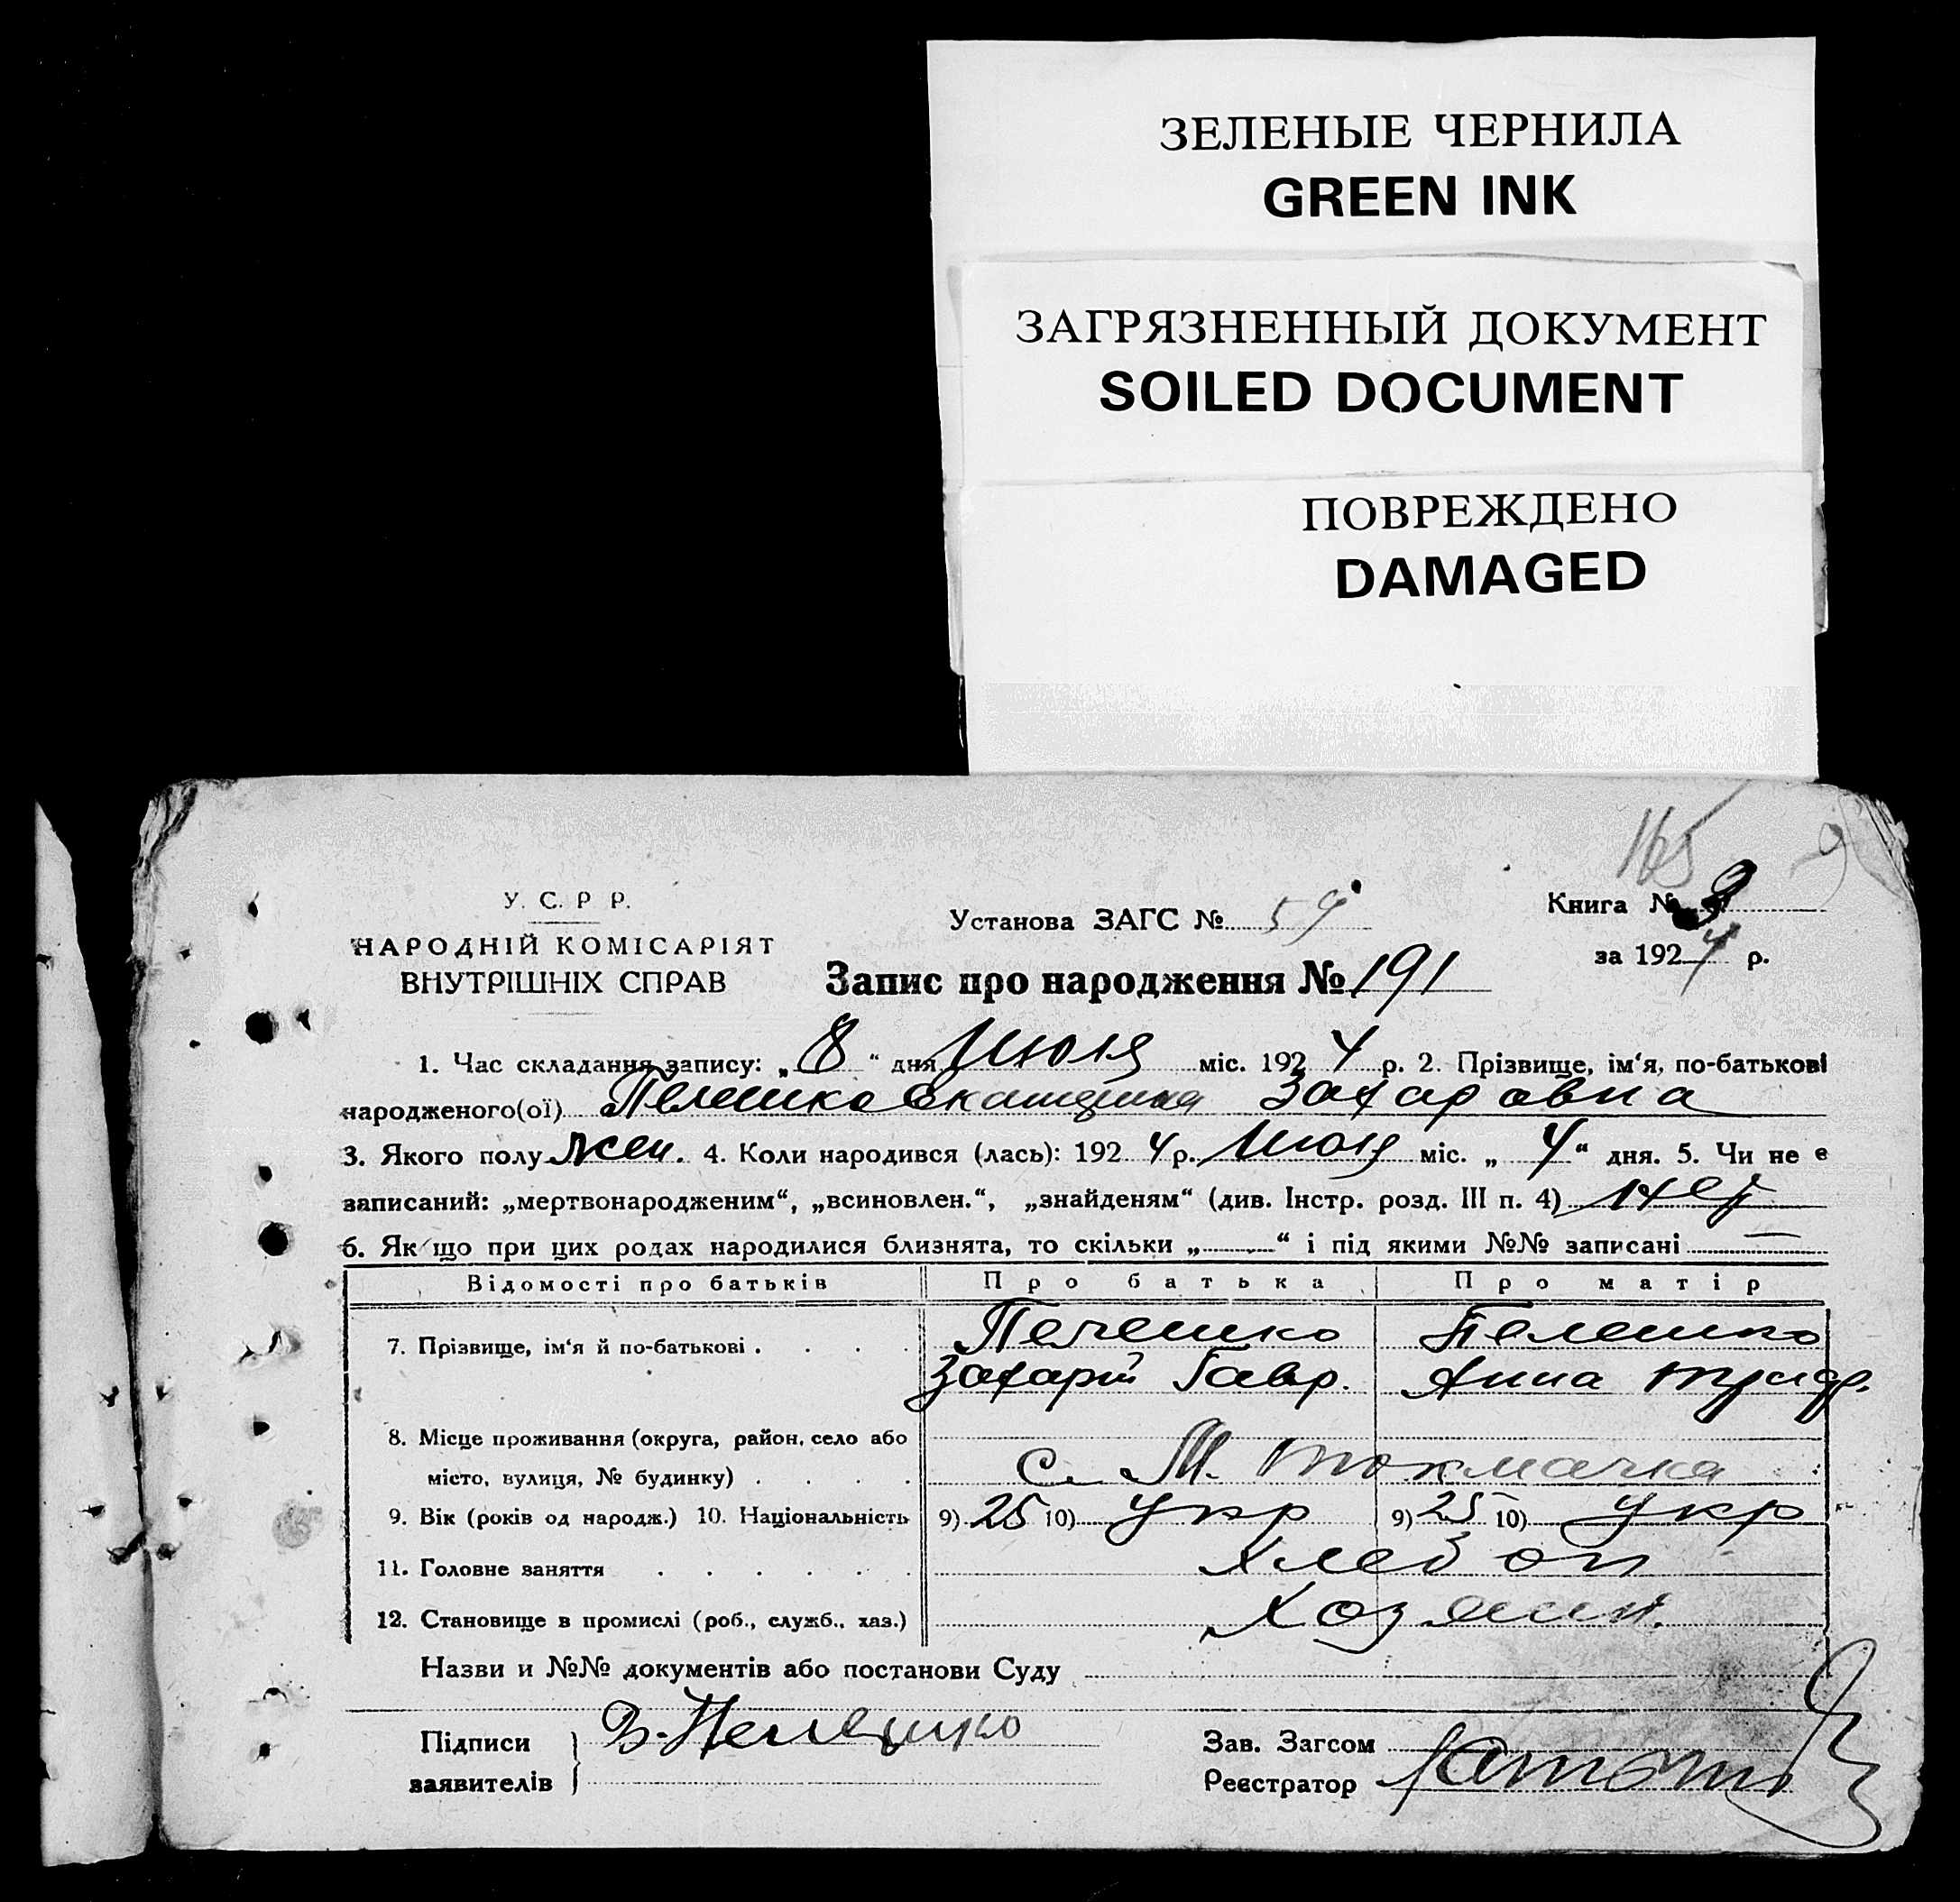 ЗЕЛЕНЫЕ ЧЕРНИЛА
GREEN INK
ЗАГРЯЗНЕННЫЙ ДОКУМЕНТ
SOILED DOCUMENT
ПОВРЕЖДЕНО
DAMAGED
165
У. С. Р Р.
НАРОДНІЙ КОМІСАРІЯТ
ВНУТРІШНІХ СПРАВ
Установа ЗАГС № 59
Книга № 9
за 1924 р.
Запис про народження № 191
1. Час складання запису: „8“ дня Июля міс. 1924 р. 2. Прізвище, ім‘я, по-батькові
народженого(ої) Пелешко Екатерина Захаровна
3. Якого полу жен. 4. Коли народився (лась): 1924 р. Июля міс. „4“ дня. 5. Чи не є
записаний: „мертвонародженим“, „всиновлен.“, „знайденям“ (див. Інстр. розд. III п. 4) нет
6. Як що при цих родах народилися близнята, то скільки „—“ і під якими №№ записані —
Відомості про батьків Про батька Про матір
7. Прізвище, ім‘я й по-батькові . . . . Пелешко Пелешко
Захарий Гавр. Анна
8. Місце проживання (округа, район, село або
місто, вулиця, № будинку) . . . . с. М. Токмачка
9. Вік (років од народж.) 10. Національність 9) 25 10) Укр 9) 25 10) Укр
11. Головне заняття . . . . . . Хлебоп
12. Становище в промислі (роб., служб., хаз.) Хозяин.
Назви и №№ документів або постанови Суду
Підписи В. Пелешко Зав. Загсом
заявителів Реєстратор